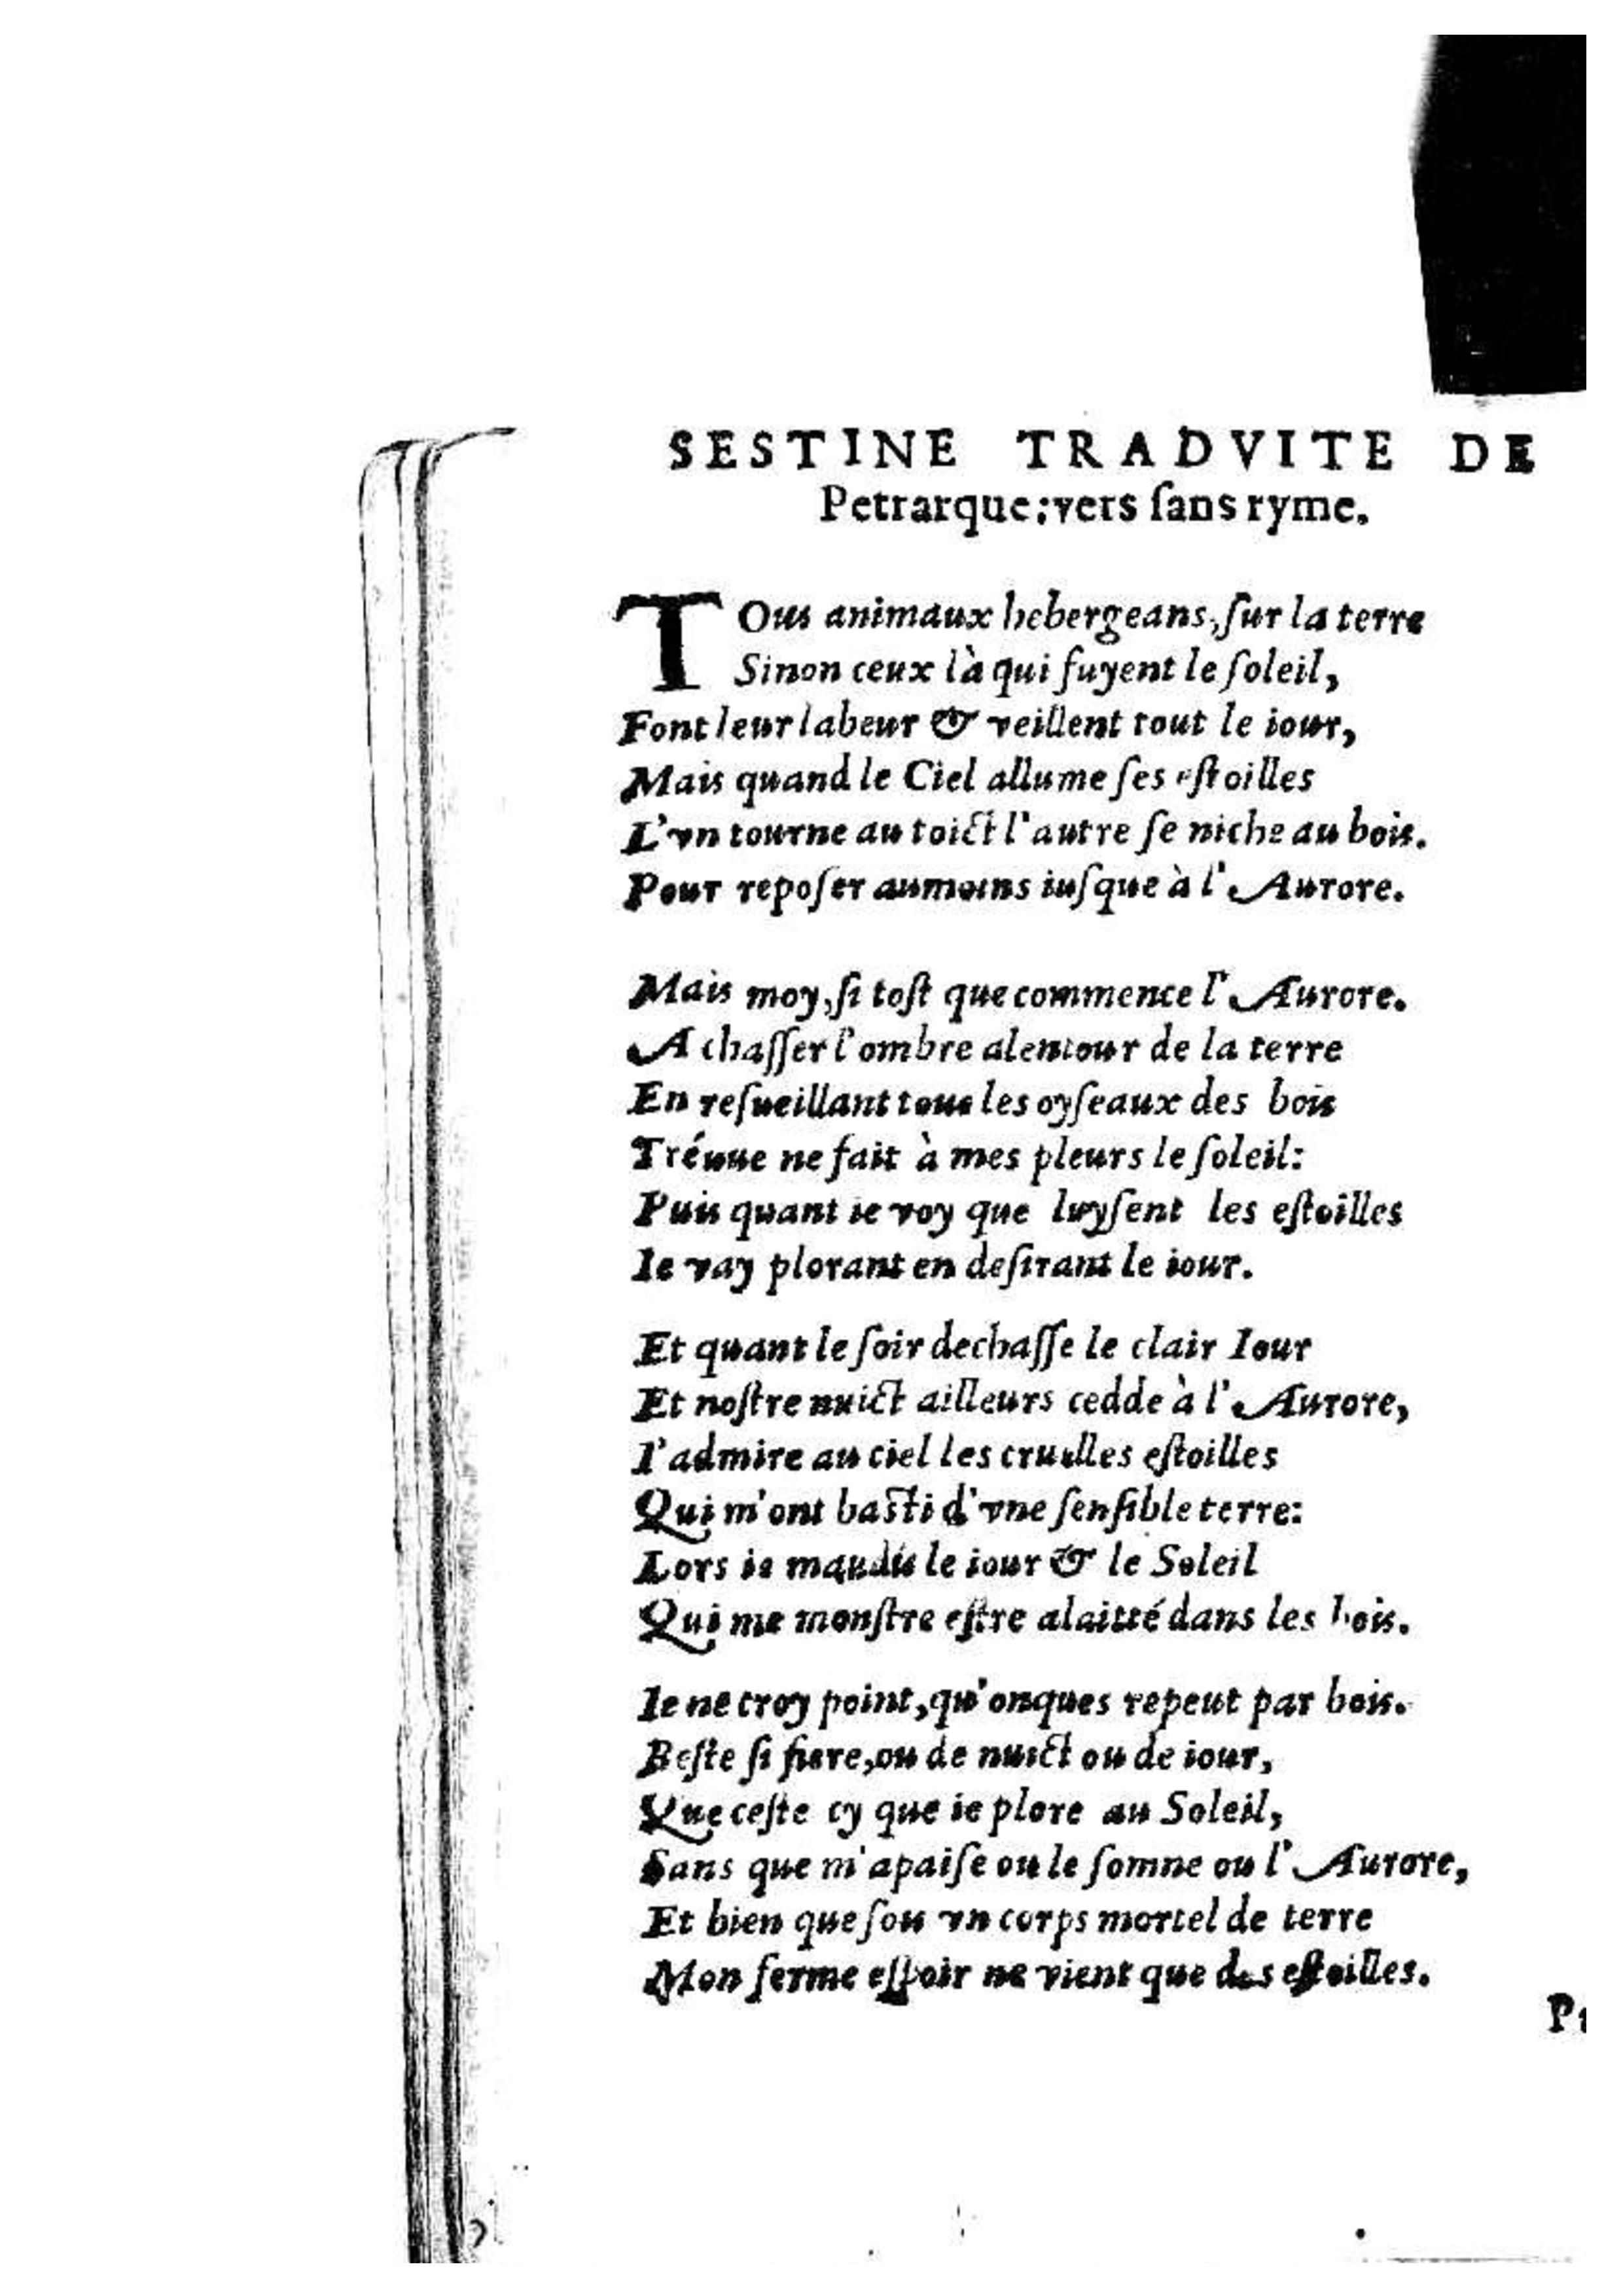 SESTINE TRADVITE DE
Petrarque;vers ſans ryme.
TOus animaux hebergeans,ſur la terre
Sinon ceux là qui fuyent le ſoleil,
Font leur labeur & veillent tout le iour,
Mais quand le Ciel allume ſes eſtoilles
L'vn tourne au toict l'autre ſe niche au bois.
Pour repoſer aumoins iuſque à l'Aurore.
Mais moy,ſi toſt que commence l'Aurore.
A chaſſer l'ombre alentour de la terre
En reſueillant tous les oyſeaux des bois
Tréuue ne fait à mes pleurs le ſoleil:
Puis quant ie voy que luyſent les eſtoilles
Ie vay plorant en deſirant le iour.
Et quant le ſoir dechaſſe le clair Iour
Et noſtre nuict ailleurs cedde à l'Aurore,
I'admire au ciel les cruelles eſtoilles
Qui m'ont baſti d'vne ſenſible terre:
Lors ie maudis le iour & le Soleil
Qui me monſtre eſtre alaitté dans les bois.
Ie ne croy point,qu'onques repeut par bois.
Beſte ſi fiere,ou de nuict ou de iour,
Que ceſte cy que ie plore au Soleil,
Sans que m'apaiſe ou le ſomne ou l'Aurore,
Et bien que ſou vn corps mortel de terre
Mon ferme eſpoir ne vient que des eſtoilles.